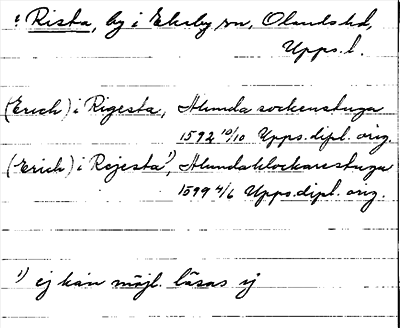 ¹ Rista, by i Ekeby sn, Olands hd,
Upps. l.
(Erich) i Rigesta, Alunda sockenstuga
1592 10/10 Upps. dipl. orig.
(Erich) i Rejesta¹), Alunda klockarestuga
1599 4/6 Upps. dipl. orig.
¹) ej kan möjl. läsas ij